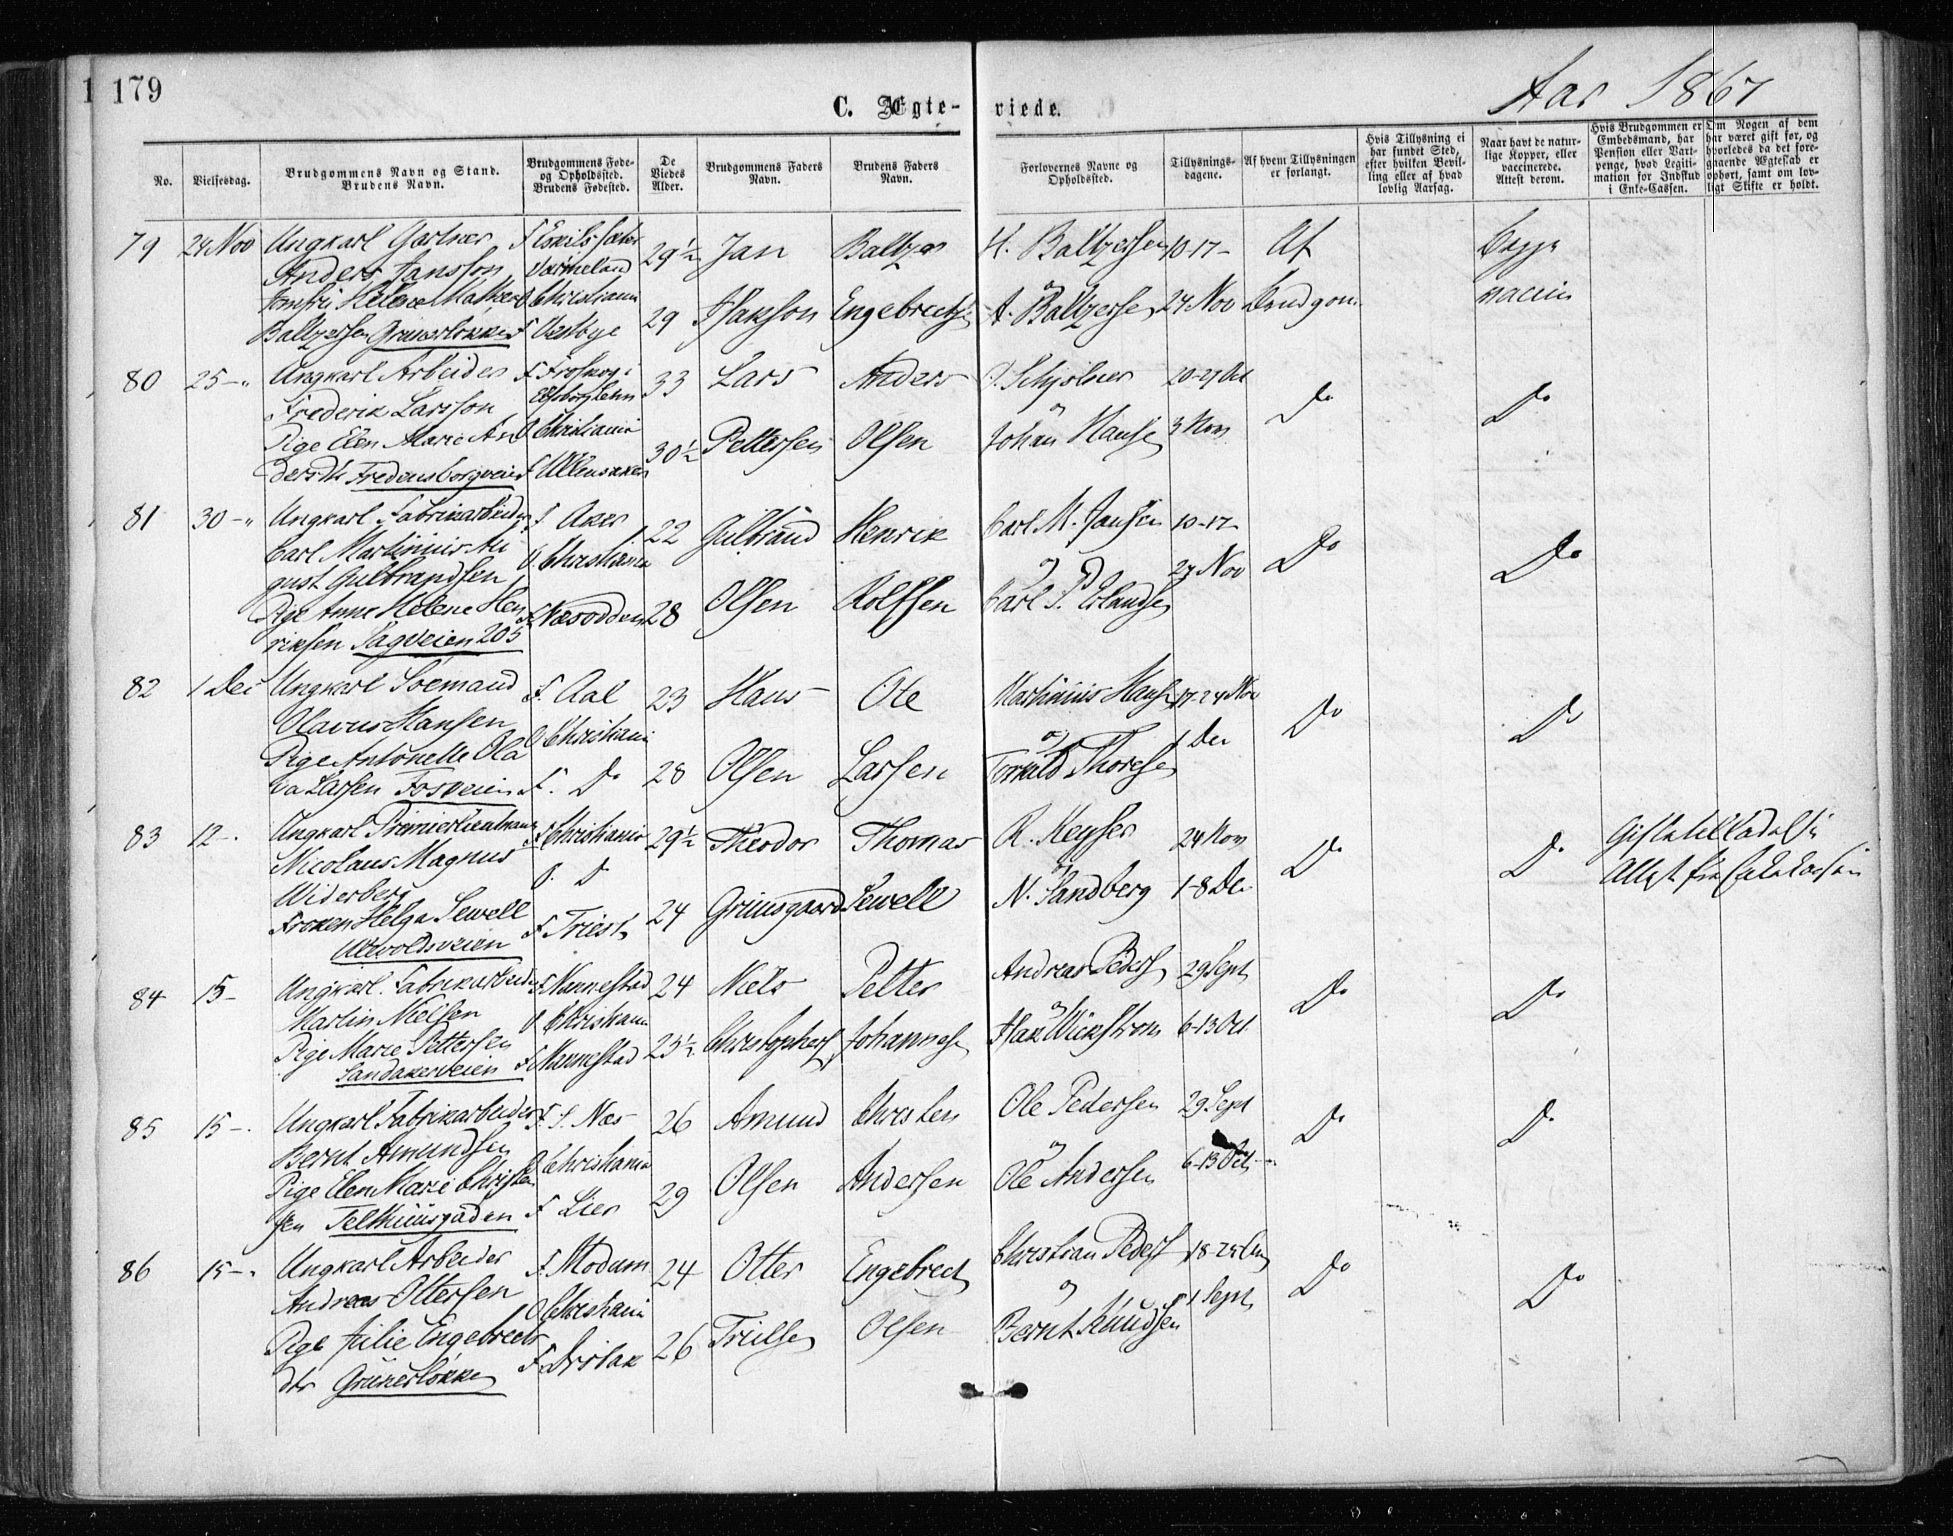 1 179
C. Ægte-
viede.
Aar 1867
No.
Vielsesdag.
Brudgommens Navn og Stand.
Brudens Navn.
Brudgommens Føde-
og Opholdssted.
Brudens Fødested.
De
Viedes
Alder.
Brudgommens Faders
Navn.
Brudens Faders
Navn.
Forlovernes Navne og
Opholdssted.
Tillysnings-
dagene.
Af hvem Tillysningen
er forlangt.
Hvis Tillysning ei
har fundet Sted,
efter hvilken Bevil-
ling eller af hvad
lovlig Aarsag.
Naar havt de natur-
lige Kopper, eller
vaccinerede.
Attest derom.
Hvis Brudgommen er
Embedsmand, har
Pension eller Vart-
penge, hvad Legiti-
mation for Indskud
i Enke-Cassen.
Om Nogen af dem
har været gift før, og
hvorledes da det fore-
gaaende Ægteskab er
ophørt, samt om lov-
ligt Skifte er holdt.
79 24 Nov Ungkarl Gartner F 29½ Jan Baltzer H. Baltzersen 10-17- Af Begge
Anders Jansson Værmeland
Jomfru Helene O Christiania og vaccin
Baltzersen Grünerløkken F Vestbye 29 Isakson Engebretsen A. Baltzersen 24 Nov Brudgom
80 25-" Ungkarl Arbeider F 33 Lars Anders Schjølner 20-27 Oct Do Do
Frederik Larsson
Pige Elen Marie An O Christiania og
dersdtr Fredensborgveien F Ullensaker 30½ Pettersen Olsen Johan Hansen 3 Nov
81 30-" Ungkarl Fabrikarbeider F Aker 22 Gulbrand Henrik Carl M. Jansen 10-17- Do Do
Carl Martinius Au O Christiania og
gust Gulbrandsen 24 Nov
Pige Anne Helene Hen F Næsodden 28 Olsen Rolfsen Carl P. Erlandsen
riksen Sagveien 205
82 1 Dec Ungkarl Søemand F. Aal 23 Hans Ole Martinius Hansen 17-24 Nov Do Do
Olavus Hansen O Christiania og 1 Dec
Pige Antonelle Ola
va Larsen Fosveien F. Do 28 Olsen Larsen Thoresen
83 12-. Ungkarl Premierlieutnant F Christiania 29½ Theodor Thomas R. Keyser 24 Nov Do Do
Nicolaus Magnus O. Do og
Widerberg
Frøken Helga Sewell F Triest 24 Grimsgaard Sewell N. Sandberg 1-8 Dec
Ullevoldsveien
84 15- Ungkarl. Fabrikarbeider F Nannestad 24 Niels Petter Andreas Peders 29 Sept Do Do
Martin Nielsen O Christiania og
Pige Marie Pettersen F Nannestad 25½ Christophersen Johannesen Isak Wickstrøm 6-13 Oct
Sandakerveien
85 15-. Ungkarl Fabrikarbeider F. S. Næs 26 Amund Christen Ole Pedersen 29 Sept Do Do
Bernt Amundsen O Christiania og
Pige Elen Marie Christen F Lier 29 Olsen Andersen Ole Andersen 6-13 Oct
sen Telthuusgaden
86 15-. Ungkarl Arbeider F. Modum 24 Otter Engebret Christian Peders 18-25 Aug Do Do
Andreas Ottersen O Christiania og 1 Sept
Pige Julie Engebrets F. Drøbak 26 Trulsen Olsen Bernt Knudsen
dtr Grünerløkken